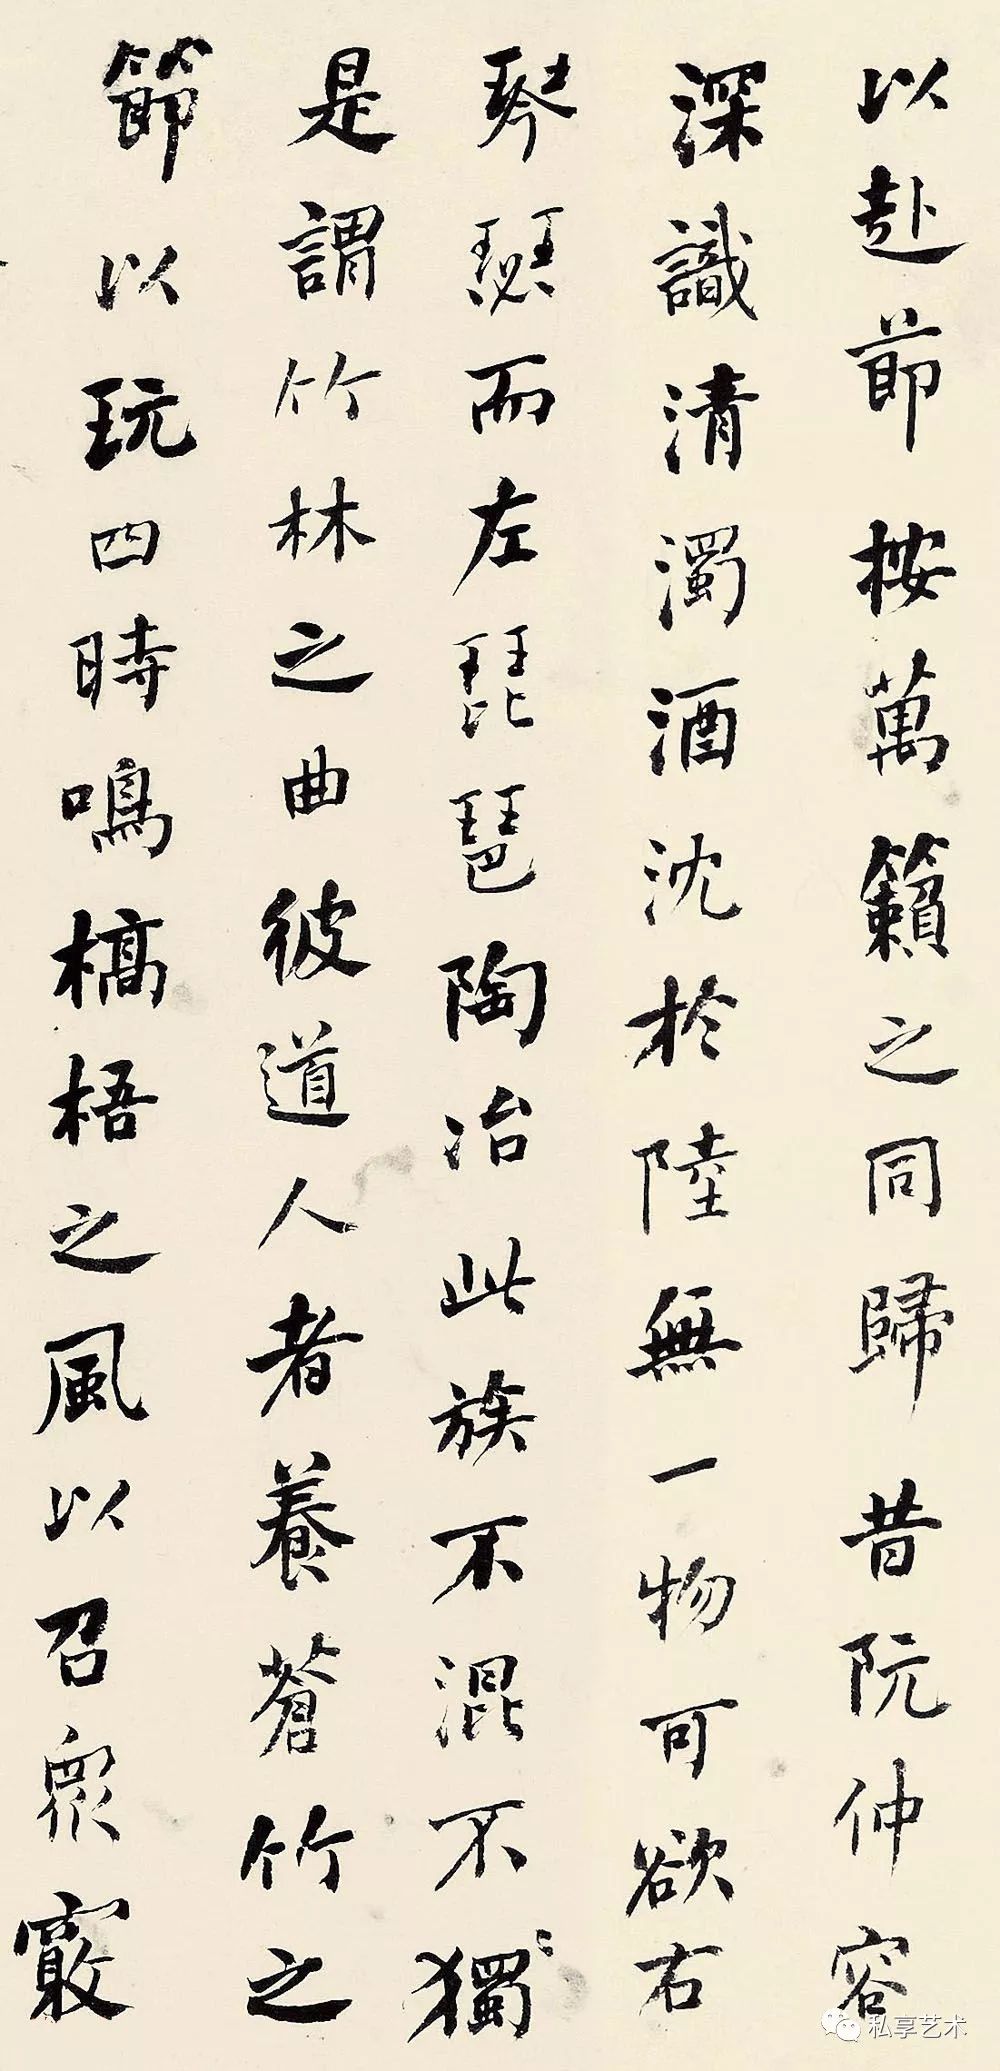 以赴節按萬籟之同歸昔阮仲容
深識清濁酒沈於陸無一物可欲右
琴瑟而左琵琶陶冶此族不混不獨
是謂竹林之曲彼道人者養蒼竹之
節以玩四時鳴槁梧之風以召衆竅
私享艺术